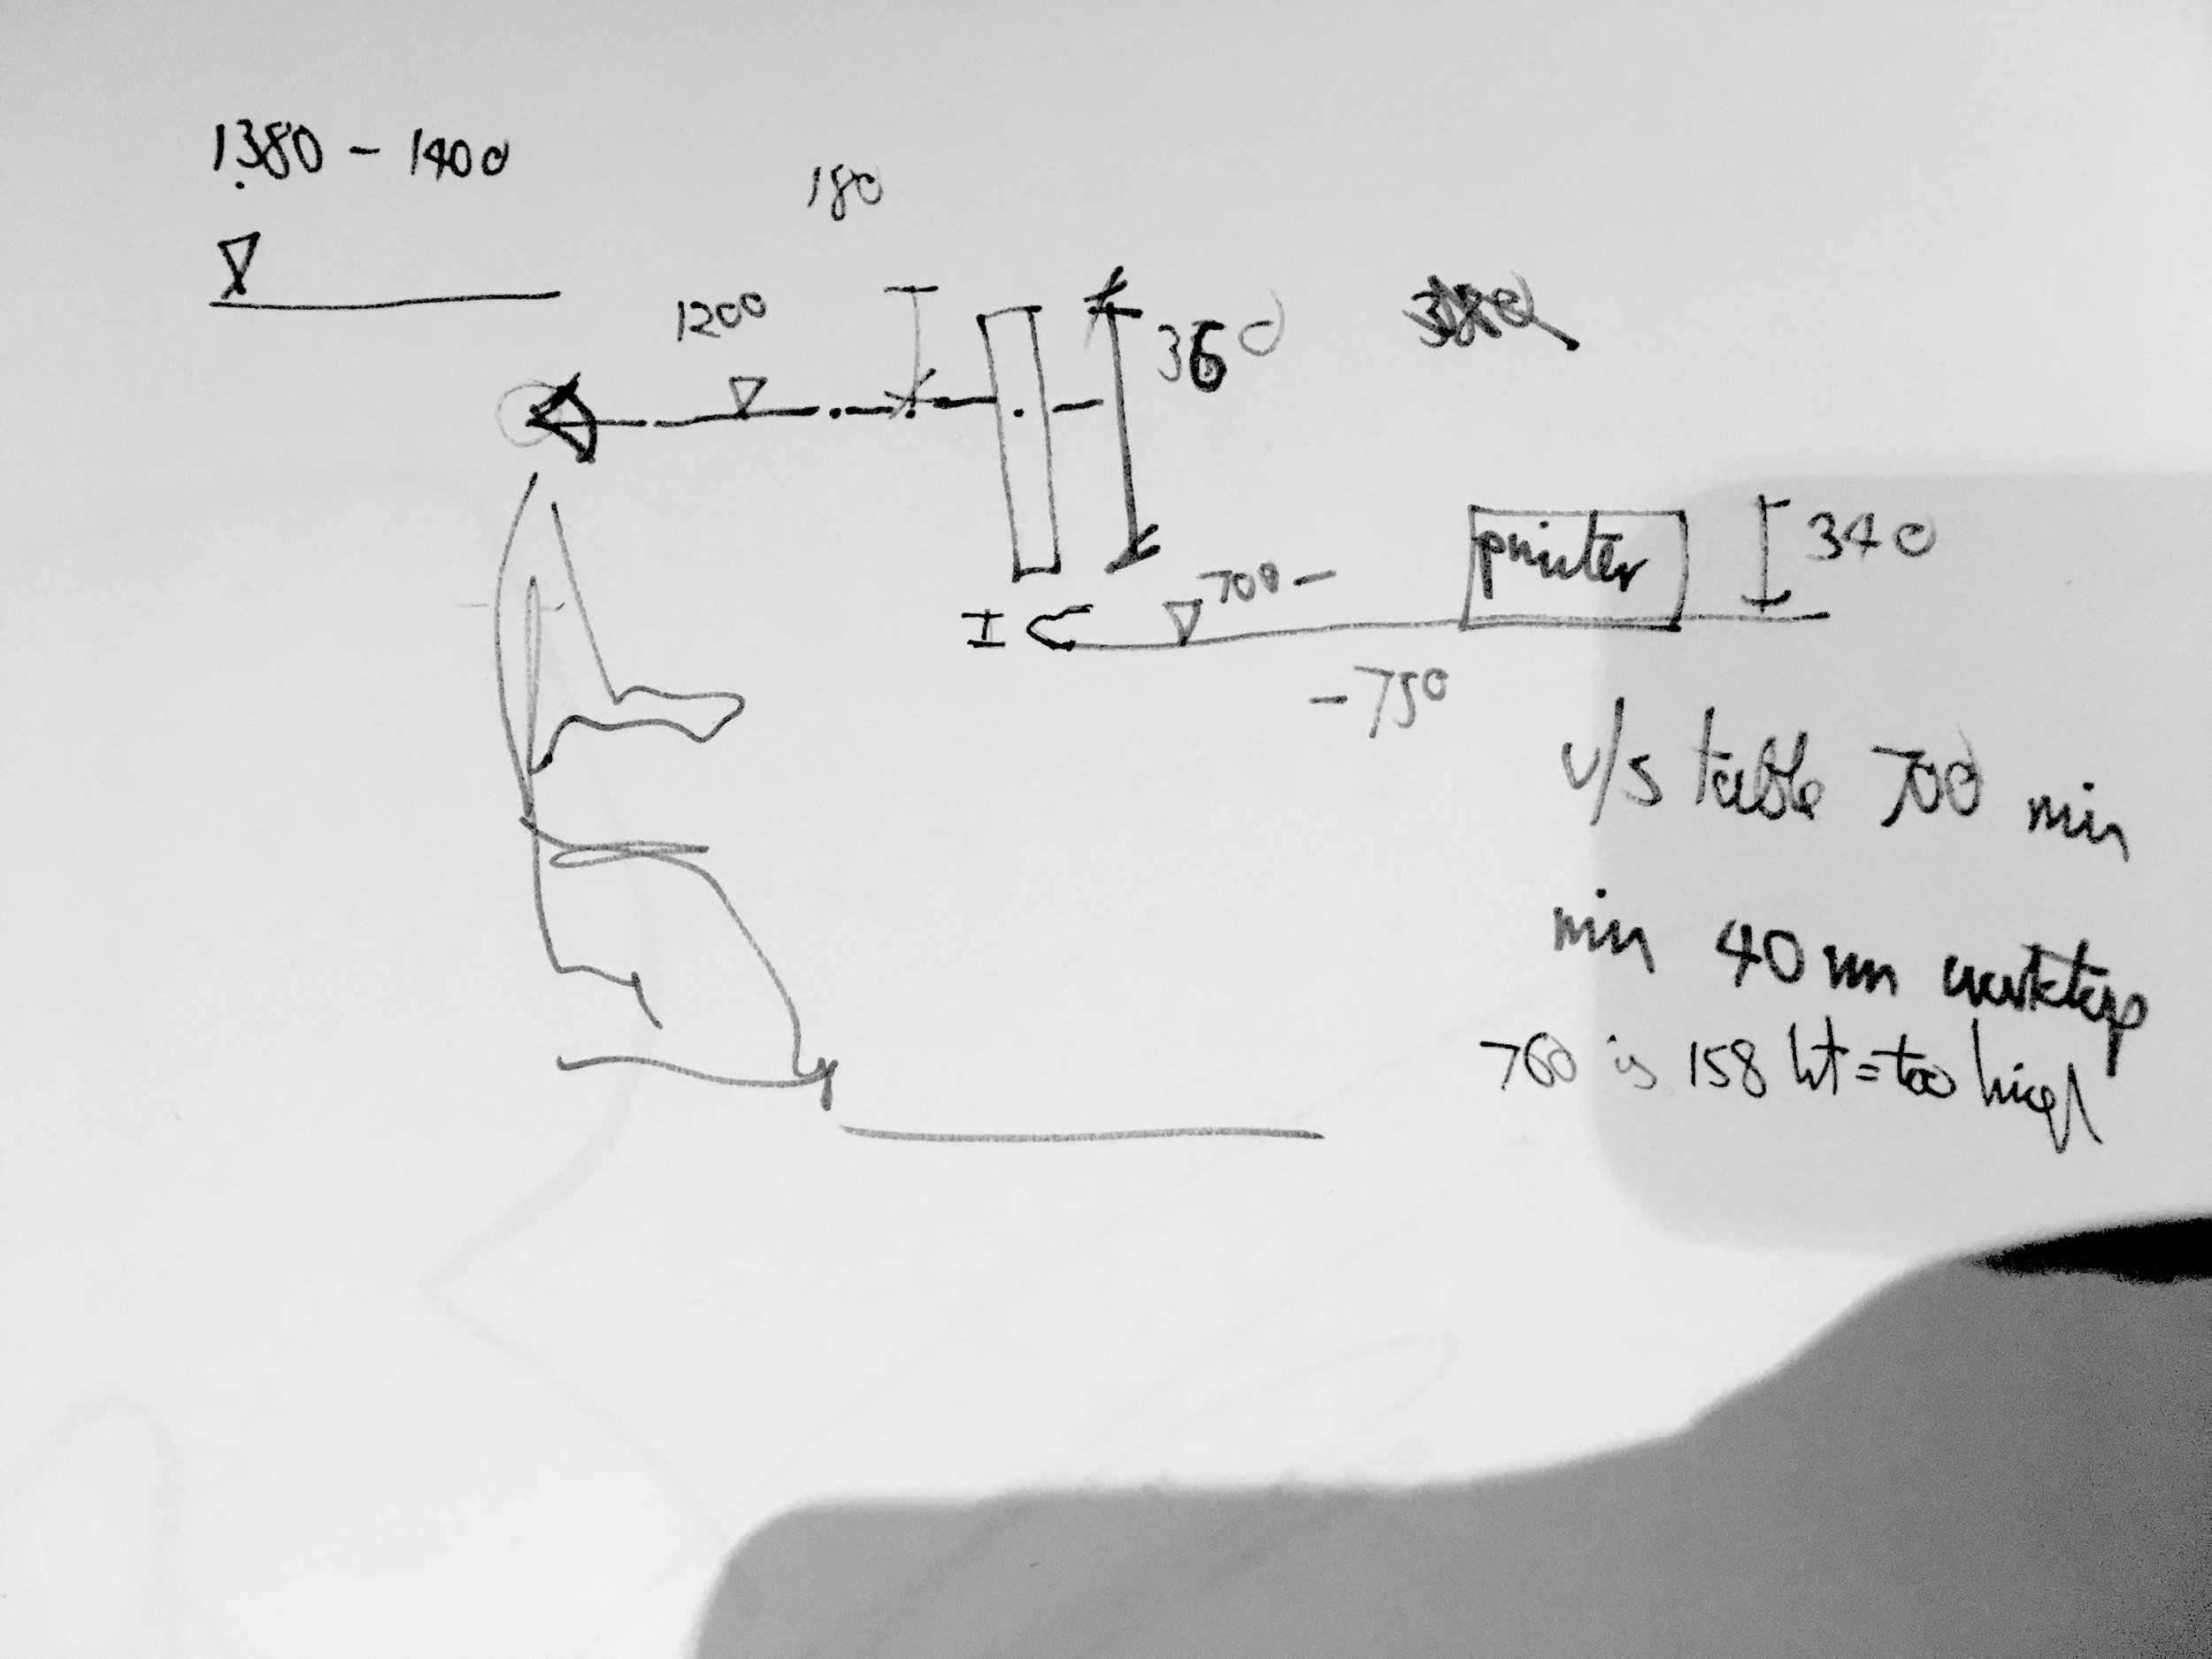 1380 - 1400
180
1200
360
printer
340
700 -
- 750
u/s table 700 min
min 40 mm worktop
760 is 158 ht = too high